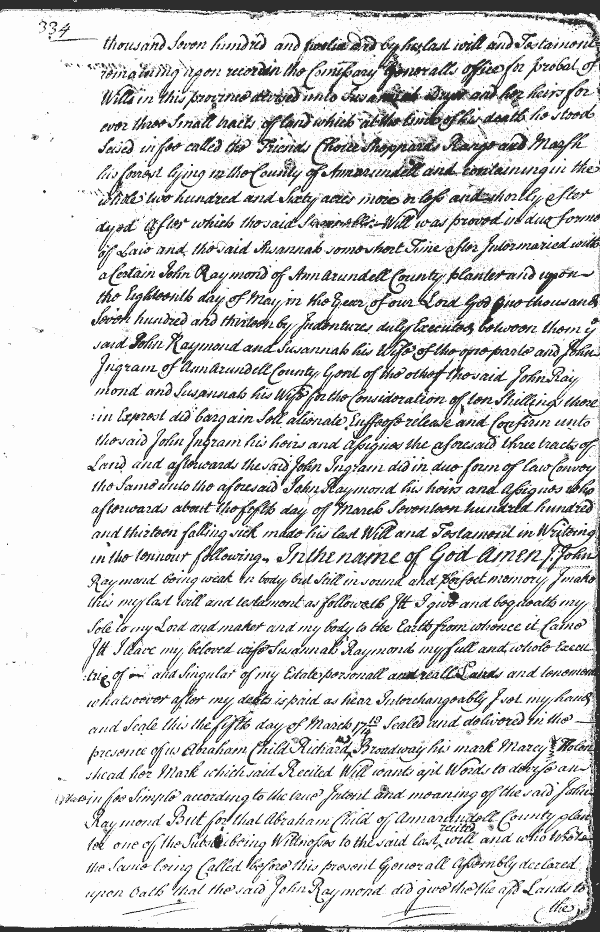 334
thousand Seven hundred and twelve and by his last will and Testament
remaining upon record in the Comissary Generalls office for probat of
Wills in this province devised unto Susannah Dryer and her heirs for
ever three Small tracts of land which at the time of his death he stood
Seised in fee called the Friends Choice Sheppards Range and Marsh
his forrest lying in the County of Annarundell and containing in the
whole two hundred and Sixty acres more or less and shortly after
dyed After which the said Will was proved in due forme
of Law and the said Susannah some short Time after Intermaried with
a Certain John Raymond of AnnArundell County planter and upon
the Eighteenth day of May in the Year of our Lord God One thousand
Seven hundred and thirteen by Indentures duly Executed between them ye
said John Raymond and Susannah his Wife of the one parte and John
Ingram of AnnArundell County Gent of the other the said John Ray
mond and Susannah his Wife for the Consideration of ten Shillings there
:in Exprest did bargain Sell alienate Enffeofe release and Confirm unto
the said John Ingram his heirs and Assignes the aforesaid three tracts of
Land and afterwards the said John Ingram did in due form of law Convey
the Same unto the aforesaid John Raymond his heirs and Assignes who
afterwards about the fifth day of March Seventeen hundred hundred
and thirteen falling sick made his last Will and Testament in Writeing
in the tennour following. In the name of God Amen I John
Raymond being weak in body but Still in sound and perfect memory I make
this my last will and testament as followeth Itt I give and bequeath my
Sole to my Lord and maker and my body to the Earth from whence it Came
Itt I leave my beloved wife Susannah Raymond my full and whole Execu
:trix of and Singular of my Estate personall and reall Lands and tenements
whatsoever after my debts is paid as hear Interchangeably I set my hand
and Seale this the fifth day of March 17 13/14 Sealed and delivered in the
presence of us Abraham Child Richard Broadway his mark Marey Holen
shead her Mark which said Recited Will wants apt Words to devise an
in fee Simple according to the true Intent and meaning of the said John
Raymond But for that Abraham Child of Annarundell County plan
ter one of the Subscribeing Wittnesses to the said last recited will and who wrote
the Same being Called before this present Generall Assembly declared
upon Oath that the said John Raymond did give the the afd Lands to
the